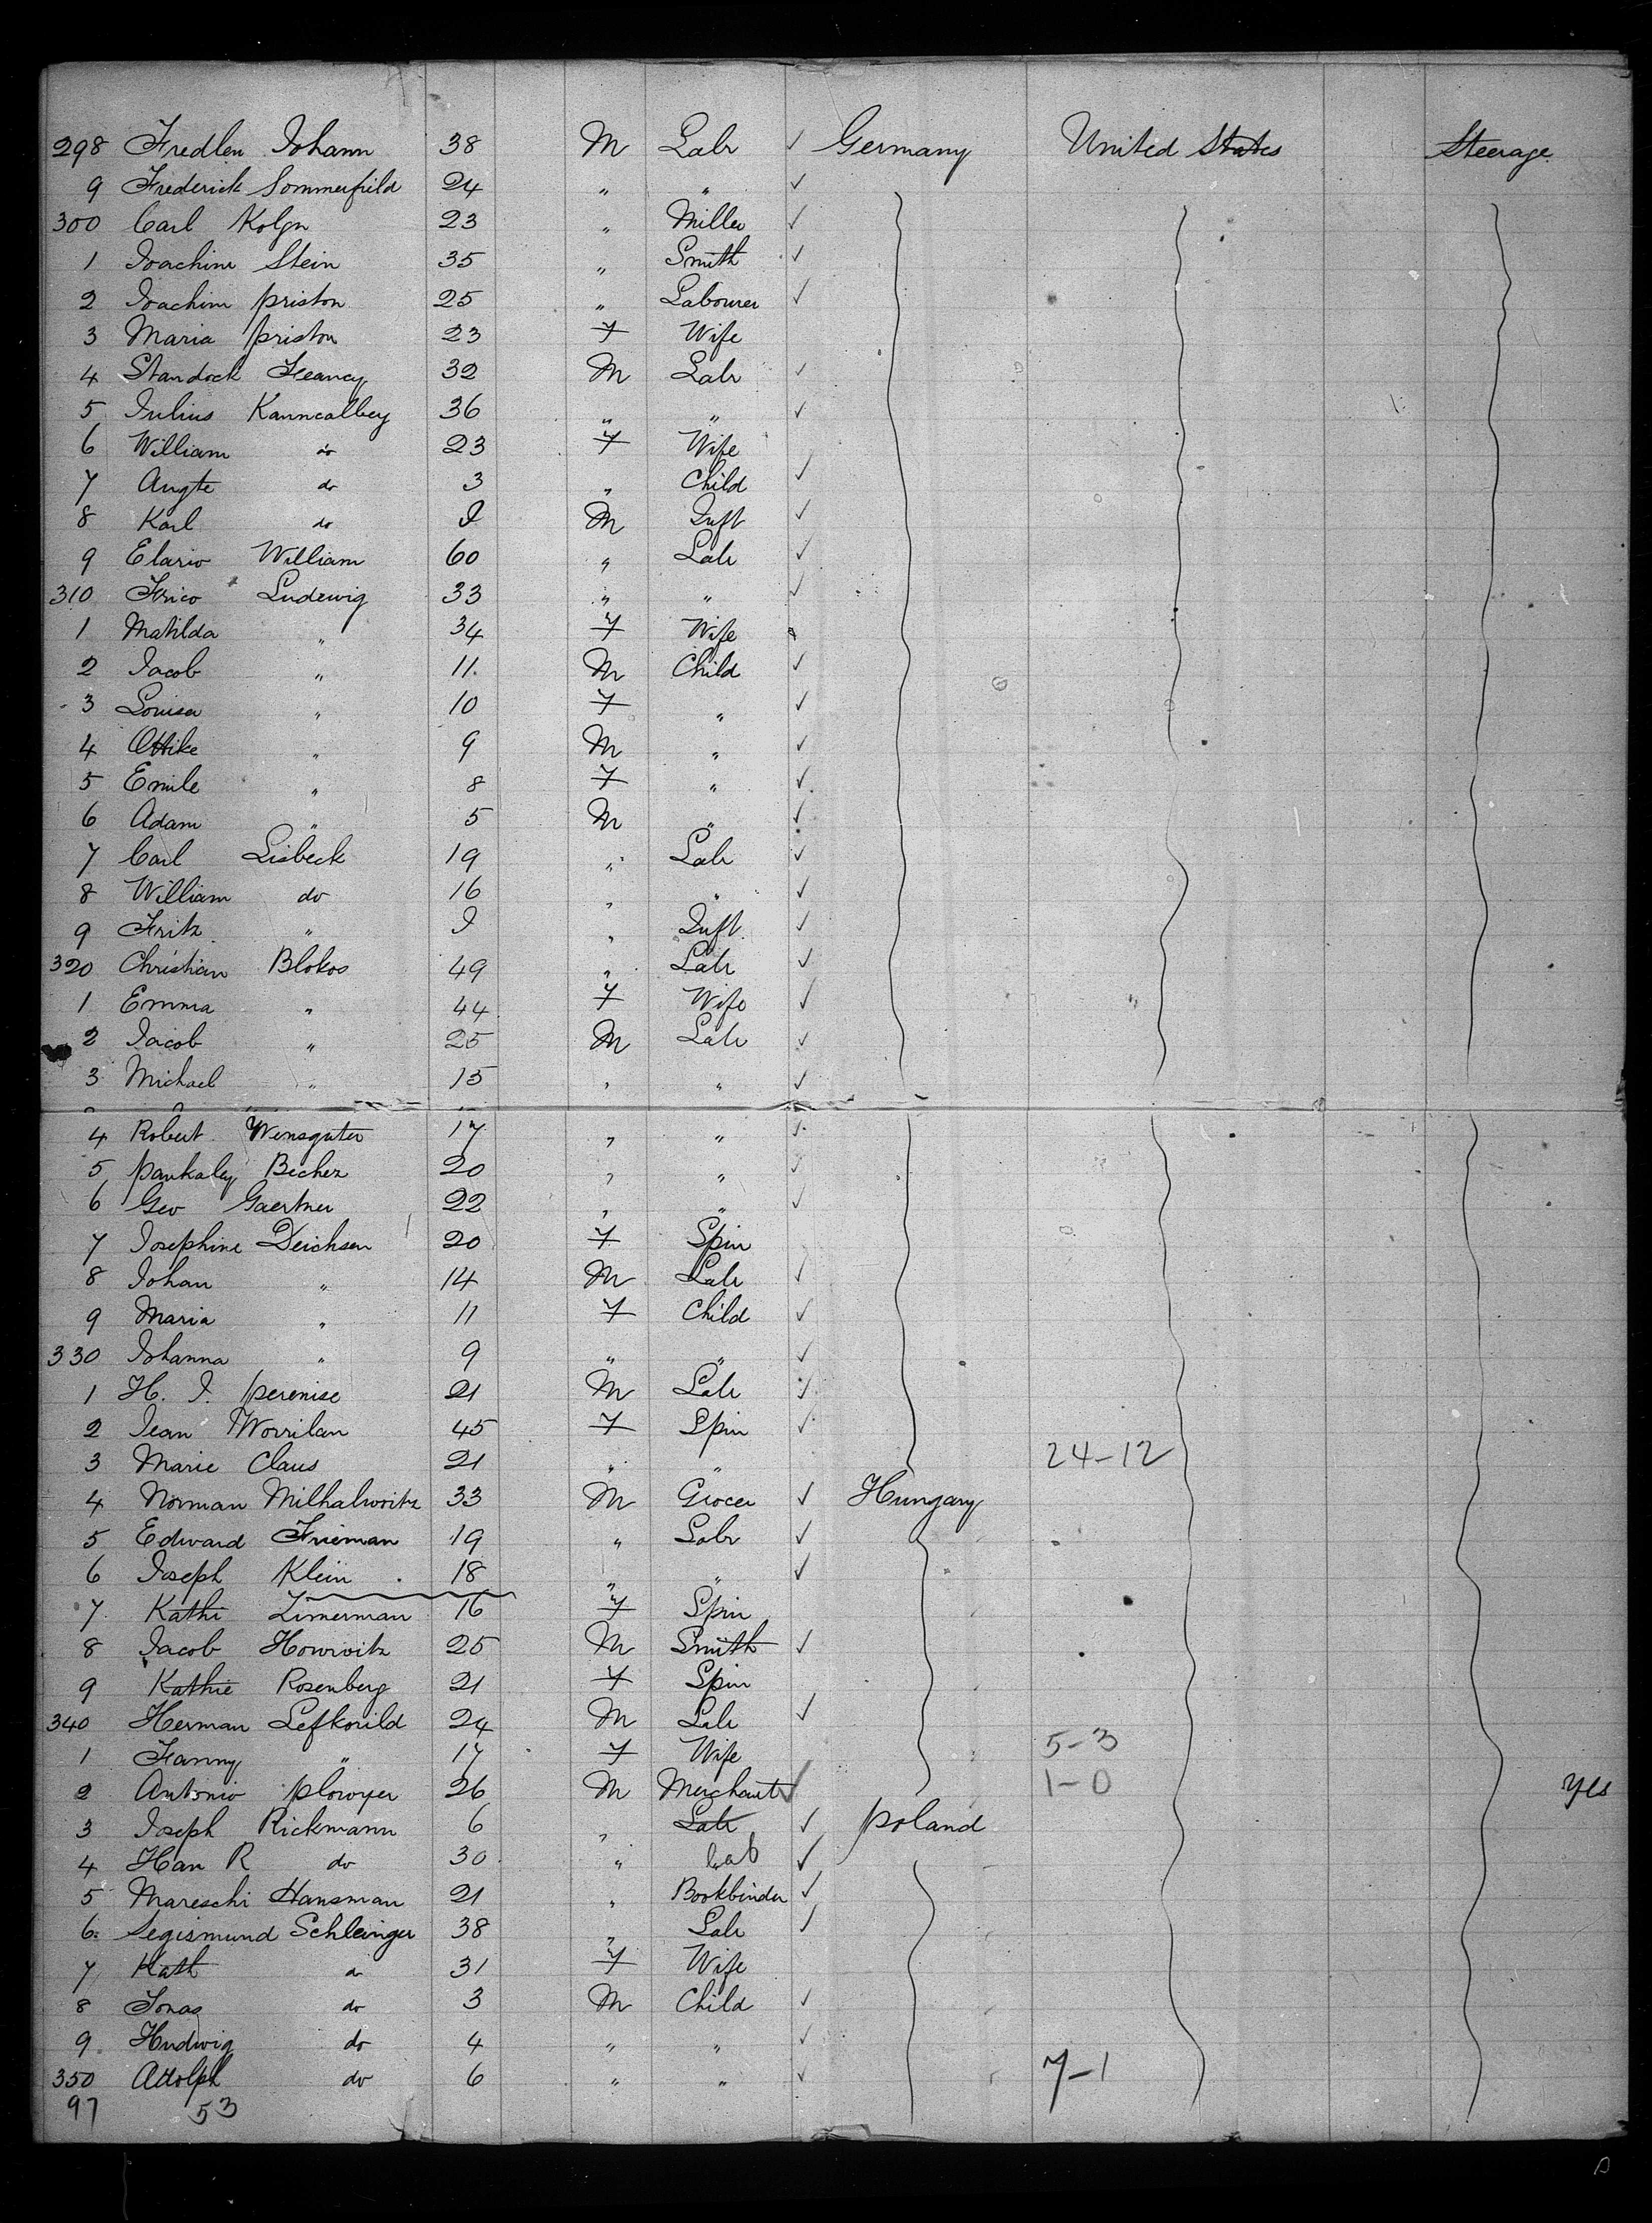 298 Fredlen Johann 38 M Labr ✓ Germany United States Steerage
9 Frederick Sommerfield 24 " " ✓
300 Carl Kolgn 23 " Miller ✓
1 Joachim Stein 35 " Smith ✓
2 Joachim Priston 25 " Labourer ✓
3 Maria Priston 23 F Wife
4 Standock 32 M Labr ✓
5 Julius Kanncalbey 36 " " ✓
6 William do 23 F Wife
7 Augte do 3 " Child ✓
8 Karl do I M Inft ✓
9 Elario William 60 " Labr ✓
310 Frico Ludewig 33 " " ✓
1 Matilda " 34 F Wife
2 Jacob " 11 M Child ✓
3 Louisa " 10 F " ✓
4 Ottike " 9 M " ✓
5 Emile " 8 F " ✓
6 Adam " 5 M " ✓
7 Carl Lisbeck 19 " Labr ✓
8 William do 16 " " ✓
9 Fritz " I " Inft ✓
320 Christian Blokos 49 " Labr ✓
1 Emma " 44 F Wife ✓
2 Jacob " 25 M Labr ✓
3 Michael " 15 " " ✓
4 Robert Wensguter 17 " " ✓
5 Pankaley Becher 20 " " ✓
6 Geo Gaertner 22 " " ✓
7 Josephine Deichsen 20 F Spin
8 Johan " 14 M Labr ✓
9 Maria " 11 F Child ✓
330 Johanna " 9 " " ✓
1 H. J. Perenise 21 M Labr ✓
2 Jean Worrilan 45 F Spin ✓
3 Marie Claus 21 " " 24-12
4 Norman Milhalwoitz 33 M Grocer ✓ Hungary
5 Edward Frieman 19 " Labr ✓
6 Joseph Klein 18 " " ✓
7 Kathi Zimerman 16 F Spin
8 Jacob Horowitz 25 M Smith ✓
9 Kathie Rosenberg 21 F Spin
340 Herman Lefkorild 24 M Labr ✓
1 Fanny " 17 F Wife 5-3
2 Antonio Plowyer 26 M Merchant ✓ 1-0 yes
3 Joseph Rickmann 6 " Labr ✓ Poland
4 Han R do 30 " Lab ✓
5 Mareschi Hansman 21 " Bookbinder ✓
6 Segismund Schleinger 38 " Labr ✓
7 Kath do 31 F Wife
8 Jonas do 3 M Child ✓
9 Hudwig do 4 " " ✓
350 Adolph do 6 " " ✓ 7-1
97 53